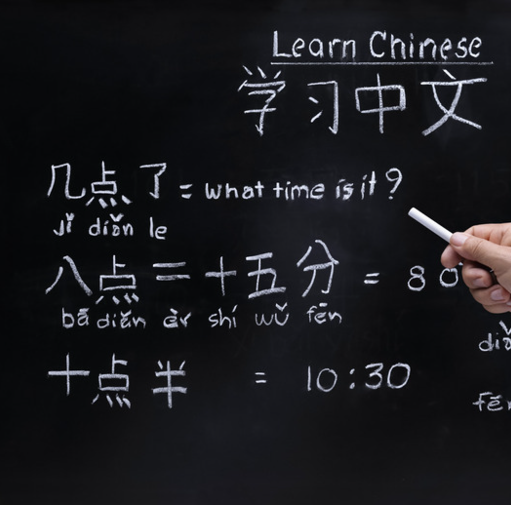 Learn Chinese
学习中文
几点了 = what time is it?
jǐ diǎn le
八点二十五分 = 8 0
bā diǎn èr shí wǔ fēn
十点半 = 10:30